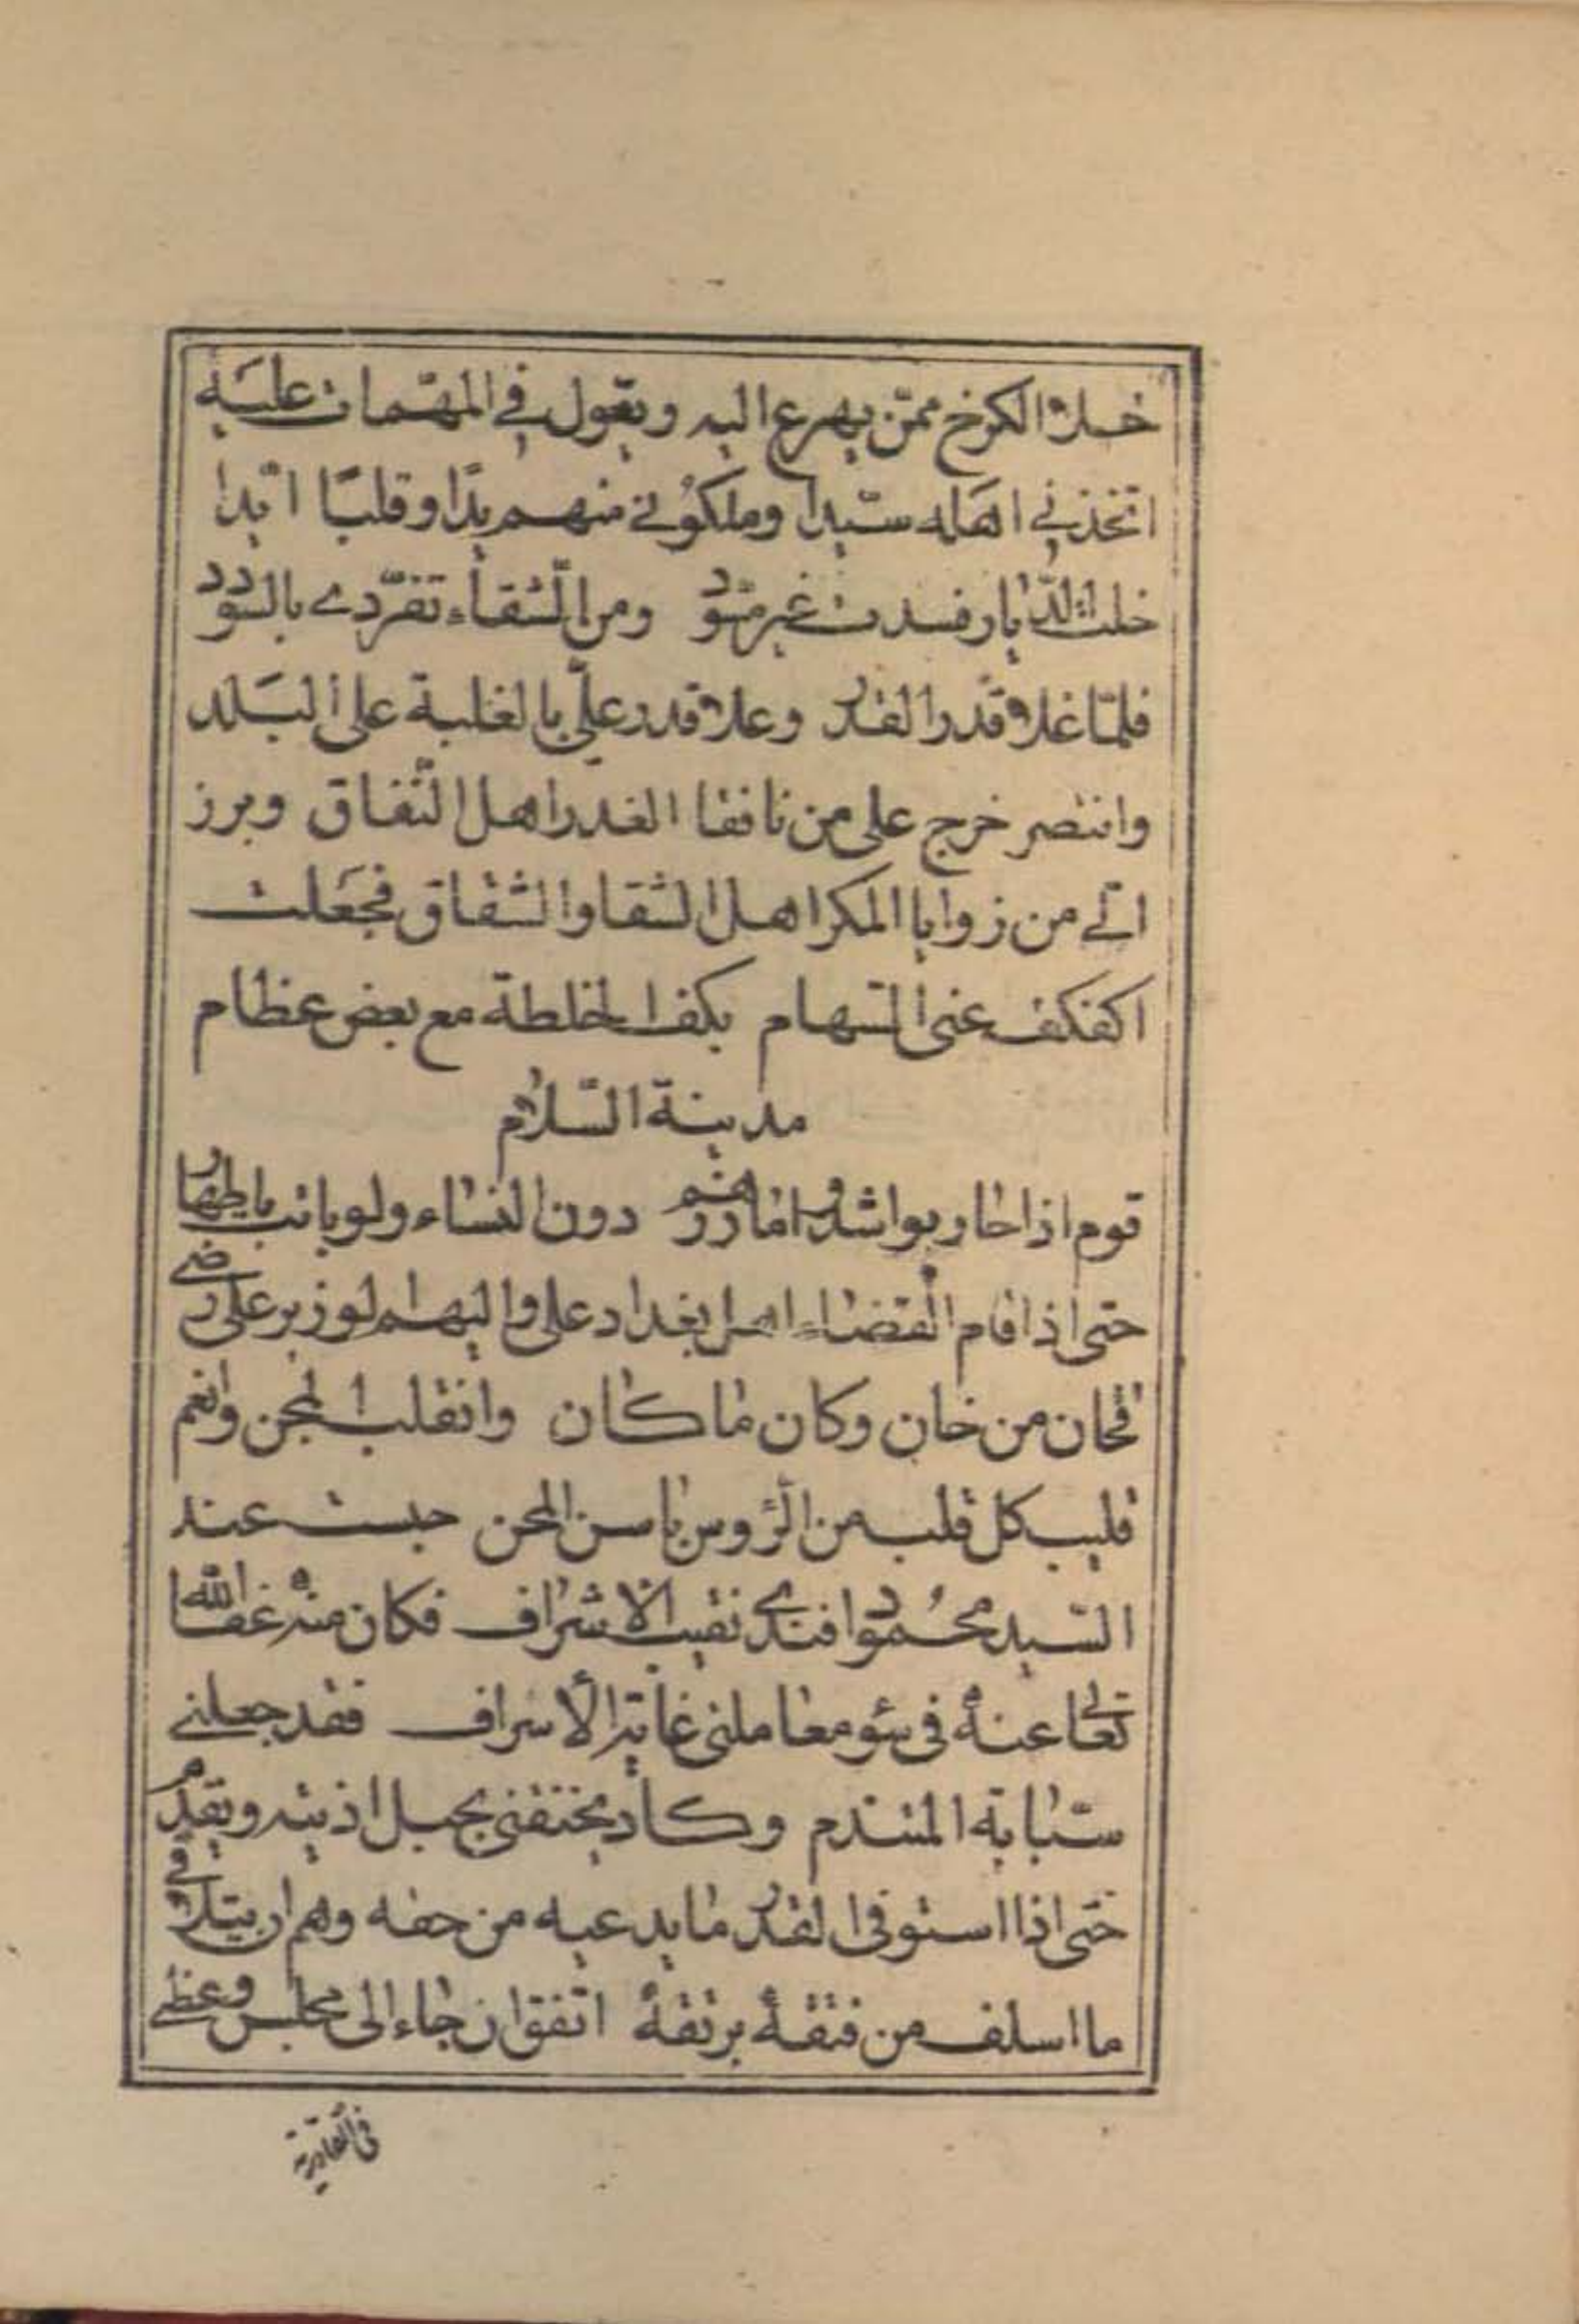 خلا الكرخ ممّن يهرع اليه ويعول في المهمات عليه
اتخذني اهله سيّدا وملكوني منهم يدًا وقلبًا ابدا
خلت الديار فسدت غير مسود ومن الشقاء تفرّدي بالسودد
فلمّا غلا قدر القدر وعلا قدر عليّ بالغلبة على البلد
وانتصر خرج على من نافقا الغدر اهل النّفاق وبرز
اليّ من زوايا المكر اهل الشقا والشقاق فجعلت
اكفكف عني السّهام بكف الخلطة مع بعض عظام
مدينة السّلام
قوم اذا حاربوا شدوا مآزرهم دون النساء ولو باتت باطهار
حتى اذا اقام القضاء اهل بغداد على واليهم لوزير علي رضي
فخان من خان وكان ما كان وانقلب المجن وانعم
قليب كل قلب من الرّؤس باسن المحن حبست عند
السّيد محمود افندي نقيب الاشراف فكان منه عفا الله
تعالى عنه في سؤ معاملتي غاية الاسراف فقد جعلني
سبّابة المتندم وكاد يخنقني بحبل اذيته ويقدم
حتى اذا استوفى القدر ما يدعيه من حقه وهم ان يتلافى
ما اسلف من فتقه برتقه اتّفق ان جاء الى مجلس وعظي
في القادرية